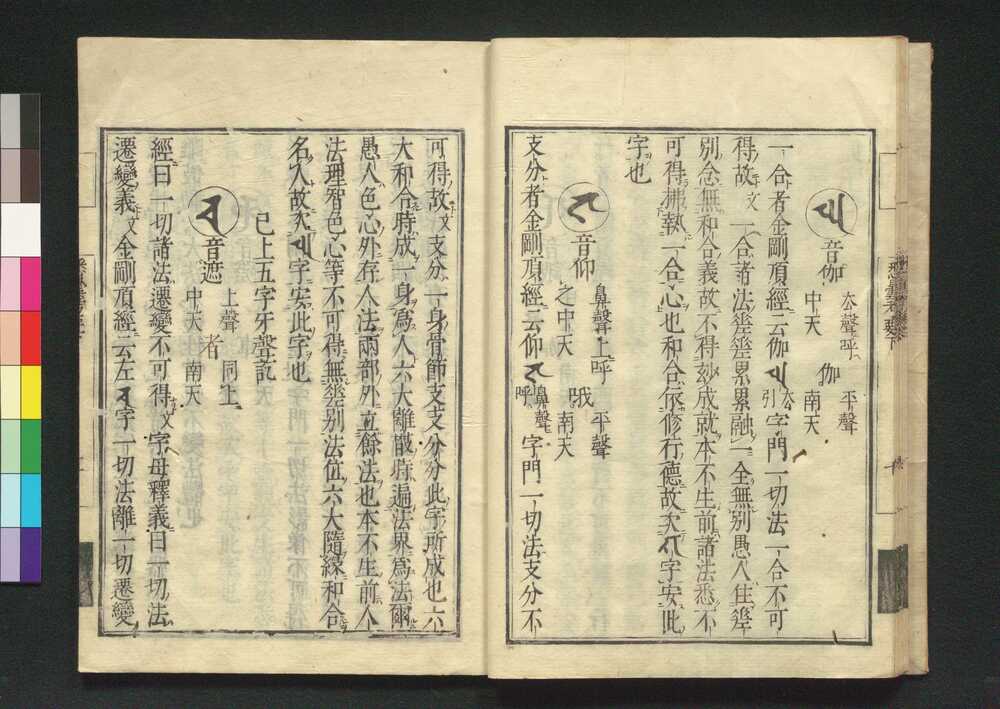 音伽 去聲呼 中天 伽 平聲 南天
一合者金剛頂經云伽 去引 字門一切法一合不可
得故文一合者法𑖀累累融一全無別愚人住
別念無和合義故不得成就本不生前諸法悉不
可得拂執一合心也和合依修行德故次 字安此
字也
音仰 鼻聲上呼 之中天 哦 平聲 南天
支分者金剛頂經云仰 鼻聲呼 字門一切法支分不
可得故文支分一身骨節支支分分此字所成也六
大和合時成一身爲人六大離散時遍法界爲法爾
愚人色心外存人法兩部外立餘法也本不生前人
法理智色心等不可得無差別法位六大隨緣和合
名人故次 字安此字也
已上五字牙聲訖
音遮 上聲 中天 者 同上 南天
經曰一切諸法遷變不可得文字母釋義曰一切法
遷變義文金剛頂經云左 字一切法離一切遷變